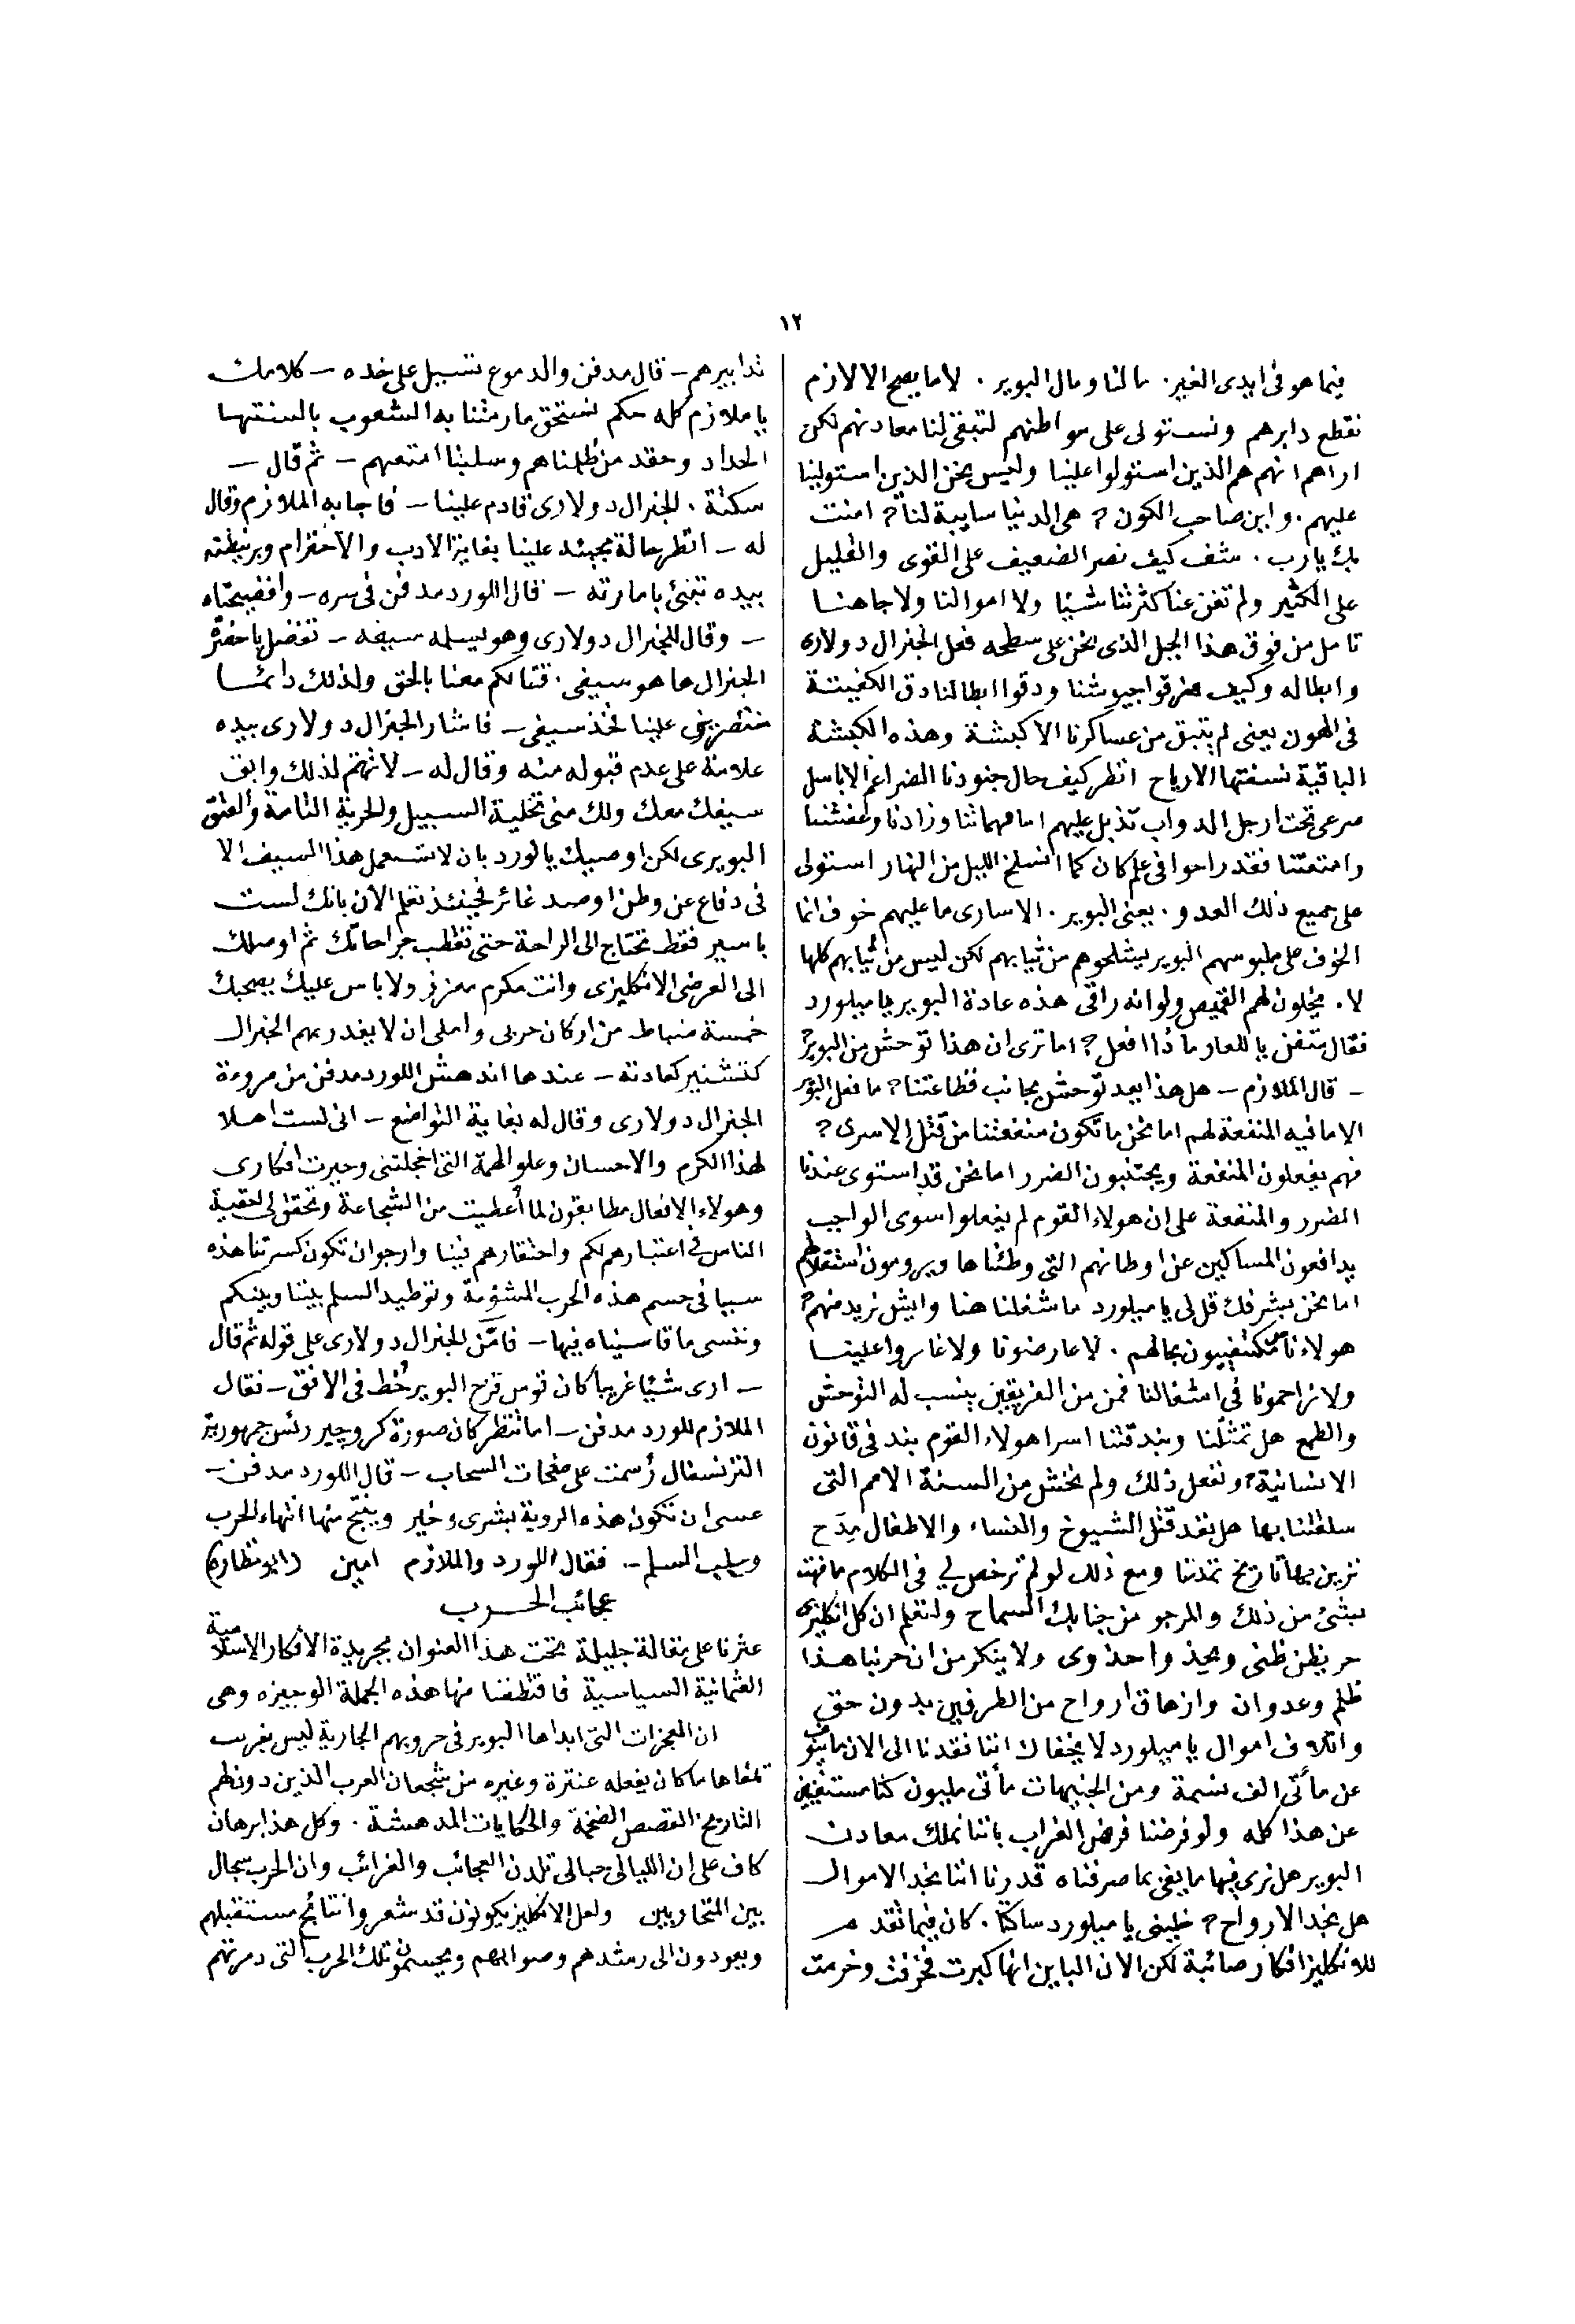 ١٢
فيما هو فى ايدى الغير. مالنا ومال البوير. لا ما يصح الا لازم
نقطع دابرهم ونستولى على مواطنهم لتبقى لنا معادنهم لكن
اراهم انهم هم الذين استولوا علينا وليس نحن الذين استولينا
عليهم. واين صاحب الكون؟ هى الدنيا سايبة لنا؟ امنت
بك يارب. شف كيف نصر الضعيف على القوى والقليل
على الكثير ولم تغن عنا كثرتنا شيئا ولا اموالنا ولا جاهنا
تامل من فوق هذا الجبل الذى نحن على سطحه فعل الجنرال دولارى
وابطاله وكيف مزقوا جيوشنا ودقوا ابطالنا دق الكفيتة
فى الهون يعنى لم يتبق من عساكرنا الا كبشة وهذه الكبشة
الباقية نسفتها الارياح انظر كيف حال جنودنا الضراغم الاباسل
صرعى تحت ارجل الدواب تذبل عليهم اما مهماتنا وزادنا وعفشنا
وامتعتنا فقد راحوا فى علم كان كما انسلخ الليل من النهار استولى
على جميع ذلك العدو. يعنى البوير. الاسارى ما عليهم خوف انما
الخوف على ملبوسهم البوير يشلحوهم من ثيابهم لكن ليس من ثيابهم كلها
لا. يخلون لهم القميص ولو انه راقى هذه عادة البوير يا ميلورد
فقال متفن يا للعار ماذا افعل؟ اما ترى ان هذا توحش من البوير؟
– قال الملازم – هل هذا يعد توحش بجانب فظاعتنا؟ ما فعل البوير
الا ما فيه المنفعة لهم اما نحن ما تكون منفعتنا من قتل الاسرى؟
فهم يفعلون المنفعة ويجتنبون الضرر اما نحن قد استوى عندنا
الضرر والمنفعة على ان هولاء القوم لم يفعلوا سوى الواجب
يدافعون المساكين عن اوطانهم التى وطئناها ويرومون استقلالهم
اما نحن بشرفك قل لى يا ميلورد ما شغلنا هنا وايش نريد منهم؟
هولاء ناس مكتفييون بحالهم. لا عارضونا ولا غاروا علينا
ولا زاحمونا فى اشغالنا فمن من الفريقين ينسب له التوحش
والطمع هل تمثلنا وبندقتنا اسرا هولاء القوم بند فى قانون
الانسانية؟ ونفعل ذلك ولم نخش من السنة الامم التى
سلقتنا بها هل نعد قتل الشيوخ والنساء والاطفال مدح
نزين بها تاريخ تمدننا ومع ذلك لو لم ترخص لى فى الكلام ما فهت
بشئ من ذلك والمرجو من جنابك السماح ولتعلم ان كل انكليزى
حر يظن ظنى ويحذ واحذوى ولا ينكر من ان حربنا هذا
ظلم وعدوان وازهاق ارواح من الطرفين بدون حق
واتلاف اموال يا ميلورد لا يخفاك اننا نقدنا الى الان ما ينوف
عن مأتى الف نسمة ومن الجنيهات مأتى مليون كنا مستغنيين
عن هذا كله ولو فرضنا فرض الغراب باننا نملك معادن
البوير هل نرى فيها ما يفى بما صرفناه قدرنا اننا نجد الاموال
هل نجد الارواح؟ خلينى يا ميلورد ساكتا. كان فيما تقدم
للانكليز افكار صائبة لكن الان الباين انها كبرت فخرفت وخرمت
تدابيرهم – قال مدفن والدموع تسيل على خده – كلامك
يا ملازم كله حكم نستحق ما رمتنا به الشعوب بالسنتها
الحداد وحقد من ظلمناهم وسلبنا امتعهم – ثم قال –
سكتة. الجنرال دولارى قادم علينا – فاجابه الملازم وقال
له – انظر حالة مجيئه علينا بغاية الادب والاحترام وبرنيطته
بيده تبنئ بامارته – قال اللورد مدفن فى سره – وافضيحتاه
– وقال للجنرال دولارى وهو يسلمه سيفه – تفضل يا حضرة
الجنرال ها هو سيفى. قتالكم معنا بالحق ولذلك دائما
منتصرين علينا فخذ سيفى – فاشار الجنرال دولارى بيده
علامة على عدم قبوله منه وقال له – لا تهتم لذلك وابق
سيفك معك ولك منى تخلية السبيل والحرية التامة والعتق
البويرى لكن اوصيك يا لورد بان لا تستعمل هذا السيف الا
فى دفاع عن وطن اوصد غائر فحينئذ تعلم الان بانك لست
باسير فقط تحتاج الى الراحة حتى تقطب جراحاتك ثم اوصلك
الى العرضى الانكليزى وانت مكرم معزز ولا باس عليك يصحبك
خمسة ضباط من اركان حربى واملى ان لا يغدر بهم الجنرال
كتشنير كعادته – عندها اندهش اللورد مدفن من مروءة
الجنرال دولارى وقال له بغاية التواضع – انى لست اهلا
لهذا الكرم والاحسان وعلو الهمة التى اخجلتنى وحيرت افكارى
وهولاء الافعال مطابقون لما أعطيت من الشجاعة وتحقق لى احقية
الناس فى اعتبارهم لكم واحتقارهم فينا وارجو ان تكون كسرتنا هذه
سببا فى حسم هذه الحرب المشؤمة وتوطيد السلم بيننا وبينكم
وننسى ما قاسيناه فيها – فامن الجنرال دولارى على قوله ثم قال
– ارى شيئا غريبا كان قوس قزح البوير خُط فى الافق – فقال
الملازم للورد مدفن – اما تنظر كان صورة كروجير رئس جمهورية
الترنسفال رُسمت على صفحات السحاب – قال اللورد مدفن –
عسى ان تكون هذه الروية بشرى وخير وينتج منها انتهاء الحرب
وسلب السلم – فقال اللورد والملازم امين (ابو نظارة)
عجائب الحرب
عثرنا على مقالة جليلة تحت هذا العنوان بجريدة الافكار الاسلامية
العثمانية السياسية فاقتطفنا منها هذه الجملة الوجيزه وهى
ان المعجزات التى ابداها البوير فى حروبهم الجارية ليس بغريب
تلقاها ما كان يفعله عنترة وغيره من شجعان العرب الذين دون لهم
التاريخ القصص الضخمة والحكايات المدهشة. وكل هذا برهان
كاف على ان الليالى حبالى تلدن العجائب والغرائب وان الحرب سجال
بين المتحاربين ولعل الانكليز يكونون قد شعروا نتائج مستقبلهم
ويعودون الى رشدهم وصوابهم ويحسمون تلك الحرب التى دمرتهم